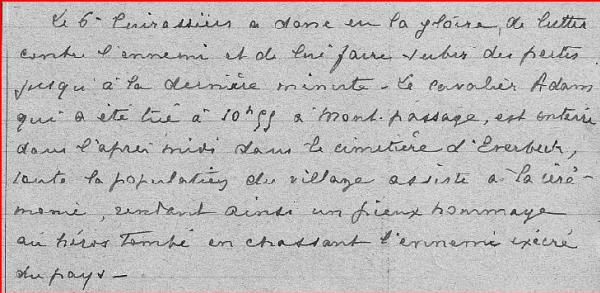 Le 6e Cuirassiers a donc eu la gloire, de lutter
contre l'ennemi et de lui faire subir des pertes
jusqu'à la dernière minute - Le cavalier Adam
qui a été tué à 10h55 à Mont-passage, est enterré
dans l'après midi dans le cimetière d'Everbecq,
toute la population du village assiste à la céré-
monie, rendant ainsi un pieux hommage
au héros tombé en chassant l'ennemi exécré
du pays -